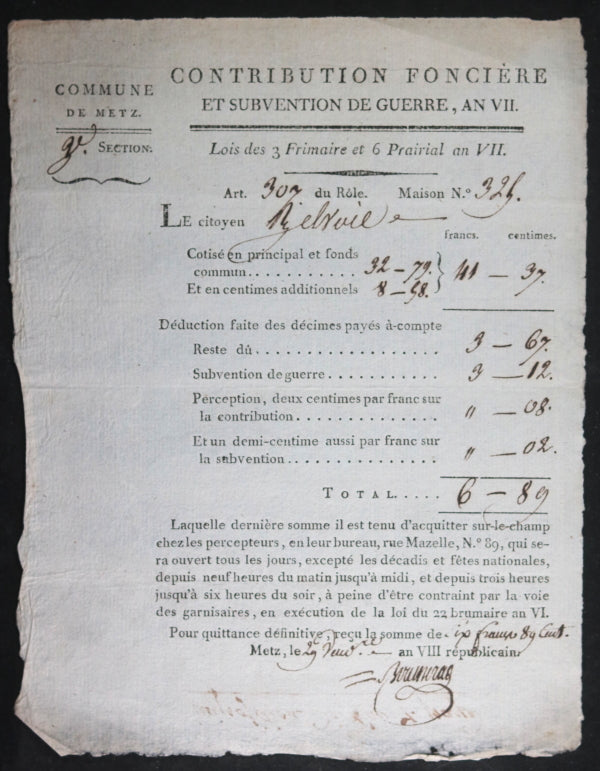 COMMUNE
DE METZ.
9e. SECTION.
CONTRIBUTION FONCIÈRE
ET SUBVENTION DE GUERRE, AN VII.
Lois des 3 Frimaire et 6 Prairial an VII.
Art. 307 du Rôle. Maison N.º 325.
LE citoyen
francs. centimes.
Cotisé en principal et fonds
commun........... 32 — 79.
Et en centimes additionnels 8 — 58. } 41 — 37
Déduction faite des décimes payés à-compte
Reste dû................. 3 — 67.
Subvention de guerre........... 3 — 12.
Perception, deux centimes par franc sur
la contribution............. " — 08.
Et un demi-centime aussi par franc sur
la subvention.............. " — 02.
TOTAL..... 6 — 89
Laquelle dernière somme il est tenu d'acquitter sur-le-champ
chez les percepteurs, en leur bureau, rue Mazelle, N.º 89, qui se-
ra ouvert tous les jours, excepté les décadis et fêtes nationales,
depuis neuf heures du matin jusqu'à midi, et depuis trois heures
jusqu'à six heures du soir, à peine d'être contraint par la voie
des garnisaires, en exécution de la loi du 22 brumaire an VI.
Pour quittance définitive, reçu la somme de six francs 89 Cent.
Metz, le 29 Vend.re an VIII républicain.